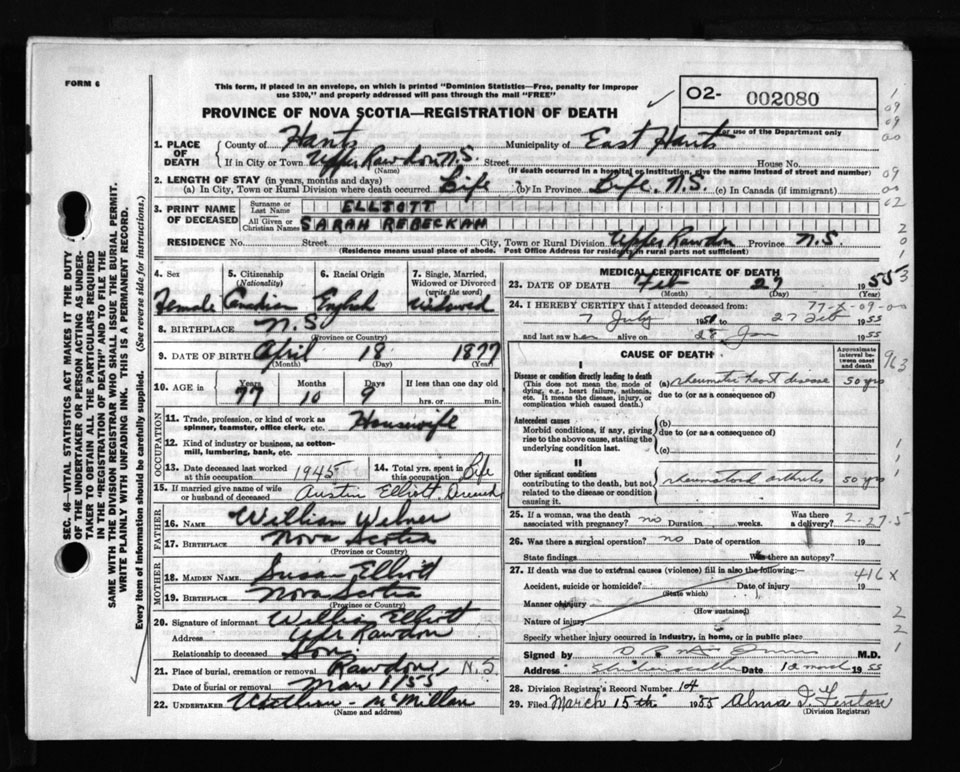 FORM 6
This form, if placed in an envelope, on which is printed "Dominion Statistics—Free, penalty for improper
use $300," and properly addressed will pass through the mail "FREE"
PROVINCE OF NOVA SCOTIA—REGISTRATION OF DEATH
O2- 002080
For use of the Department only
1. PLACE OF DEATH
County of Hants Municipality of East Hants
If in City or Town Upper Rawdon N.S. Street House No.
(Name) (If death occurred in a hospital or institution, give the name instead of street and number)
2. LENGTH OF STAY (in years, months and days)
(a) In City, Town or Rural Division where death occurred Life (b) In Province Life. N.S. (c) In Canada (if immigrant)
3. PRINT NAME OF DECEASED
Surname or Last Name ELLIOTT
All Given or Christian Names SARAH REBECKAH
RESIDENCE No. Street City, Town or Rural Division Upper Rawdon Province N.S.
(Residence means usual place of abode. Post Office Address for residence in rural parts not sufficient)
4. Sex Female
5. Citizenship (Nationality) Canadian
6. Racial Origin English
7. Single, Married, Widowed or Divorced (write the word) Widowed
8. BIRTHPLACE N.S.
(Province or Country)
9. DATE OF BIRTH April 18 1877
(Month) (Day) (Year)
10. AGE in Years Months Days If less than one day old
77 10 9 hrs. or min.
OCCUPATION
11. Trade, profession, or kind of work as spinner, teamster, office clerk, etc. Housewife
12. Kind of industry or business, as cotton-mill, lumbering, bank, etc.
13. Date deceased last worked at this occupation 1945
14. Total yrs. spent in this occupation Life
15. If married give name of wife or husband of deceased Austin Elliott
FATHER
16. NAME William Wilner
17. BIRTHPLACE Nova Scotia
(Province or Country)
MOTHER
18. MAIDEN NAME Susan Elliott
19. BIRTHPLACE Nova Scotia
(Province or Country)
20. Signature of informant William Elliott
Address Upr Rawdon
Relationship to deceased Son
21. Place of burial, cremation or removal Rawdon, N.S
Date of burial or removal Mar 1/55
22. UNDERTAKER McMillan
(Name and address)
MEDICAL CERTIFICATE OF DEATH
23. DATE OF DEATH Feb 27 1955
(Month) (Day) (Year)
24. I HEREBY CERTIFY that I attended deceased from:
77-X-09-00
7 July 27 Feb 1955
and last saw her alive on 28 Jan 1955
CAUSE OF DEATH
Approximate interval between onset and death
I
Disease or condition directly leading to death
(This does not mean the mode of dying, e.g., heart failure, asthenia, etc. It means the disease, injury, or complication which caused death.)
(a) rheumatic heart disease 50 yrs
due to (or as a consequence of)
Antecedent causes
Morbid conditions, if any, giving rise to the above cause, stating the underlying condition last.
(b)
due to (or as a consequence of)
(c)
II
Other significant conditions
contributing to the death, but not related to the disease or condition causing it.
rheumatoid arthritis 50 yrs
25. If a woman, was the death associated with pregnancy? no Duration weeks. Was there a delivery?
2.27.5
26. Was there a surgical operation? no Date of operation 19
State findings Was there an autopsy?
27. If death was due to external causes (violence) fill in also the following:—
Accident, suicide or homicide? Date of injury 19
(State which)
416 x
Manner of injury
(How sustained)
Nature of injury
Specify whether injury occurred in industry, in home, or in public place
Signed by M.D.
Address Date 1955
28. Division Registrar's Record Number 14
29. Filed March 15th 1955 Alma I. Fenton
(Division Registrar)
SEC. 46—VITAL STATISTICS ACT MAKES IT THE DUTY
OF THE UNDERTAKER OR PERSON ACTING AS UNDER-
TAKER TO OBTAIN ALL THE PARTICULARS REQUIRED
IN THE "REGISTRATION OF DEATH" AND TO FILE THE
SAME WITH THE DIVISION REGISTRAR WHO SHALL ISSUE THE BURIAL PERMIT.
WRITE PLAINLY WITH UNFADING INK. THIS IS A PERMANENT RECORD.
Every item of information should be carefully supplied. (See reverse side for instructions.)
1
09
09
00
09
00
02
2
0
1
3
963
1
1
1
1
2
2
1